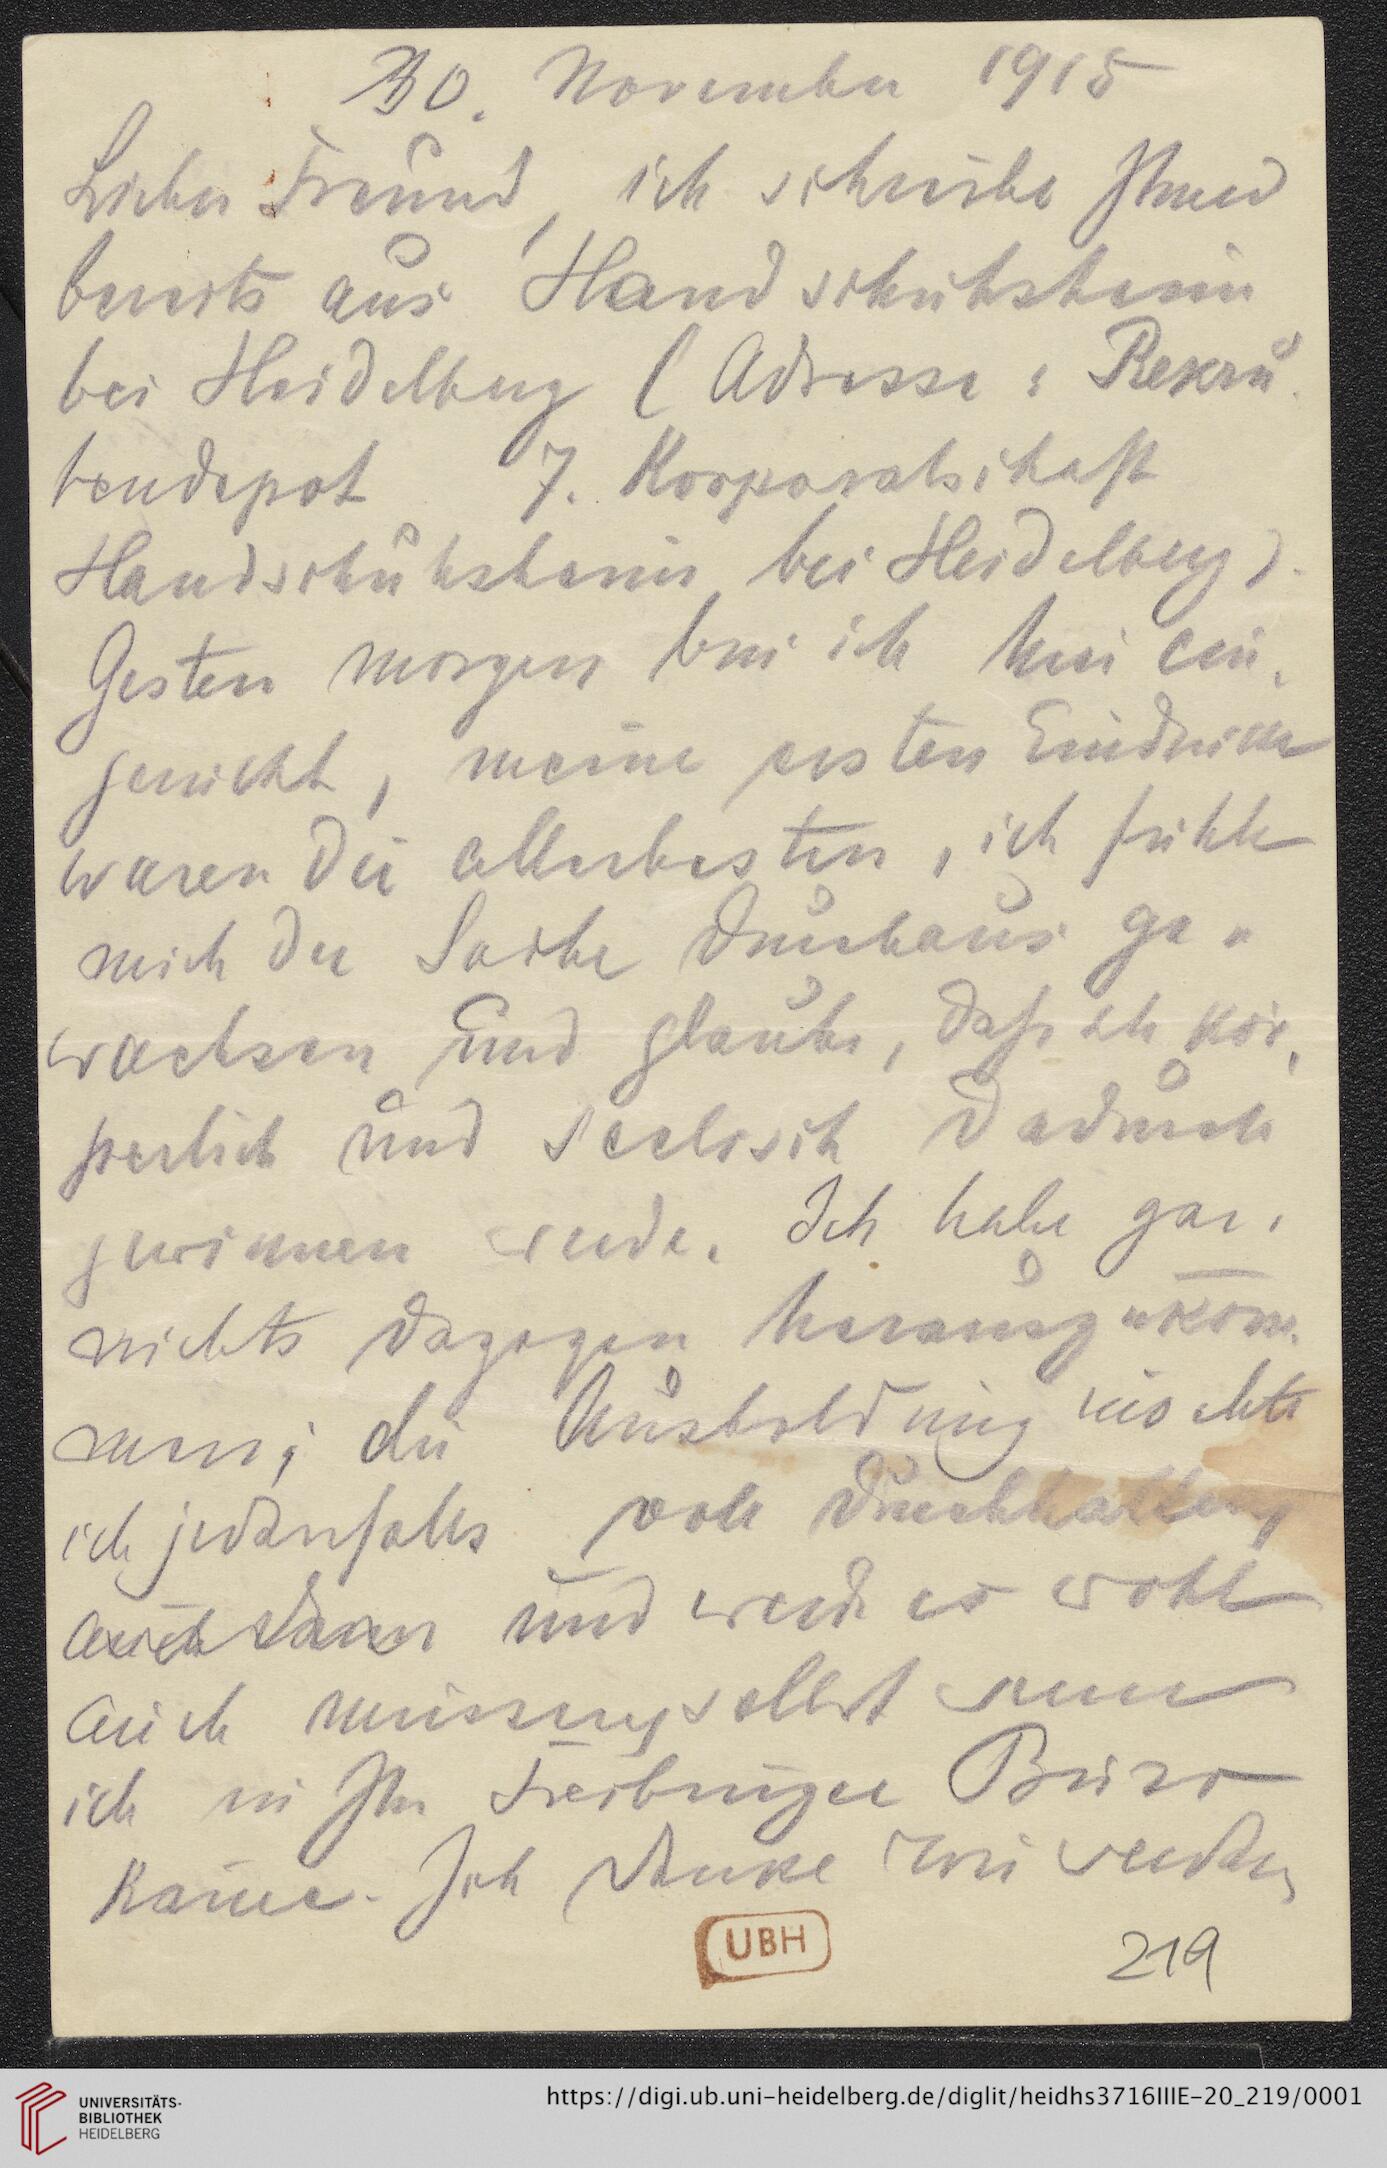 30. November 1915
Lieber Freund, ich schreibe Ihnen
bereits aus Handschuhsheim
bei Heidelberg (Adresse: Rekru-
tendepot 7. Korporalschaft
Handschuhsheim bei Heidelberg).
Gestern morgen bin ich hier ein-
gerückt, meine ersten Eindrücke
waren die allerbesten, ich fühle
mich der Sache durchaus ge-
wachsen und glaube, dass ich kör-
perlich und seelisch dadurch
gewinnen werde. Ich habe gar-
nichts dagegen herauszukom-
men; die Ausbildung möchte
ich jedenfalls voll durchhalten,
auch dann und werde es wohl
auch müssen, selbst wenn
ich in Ihr Freiburger Büro
käme. Ich danke wir werden
UBH
219
UNIVERSITÄTS-
BIBLIOTHEK
HEIDELBERG
https://digi.ub.uni-heidelberg.de/diglit/heidhs3716IIIE-20_219/0001